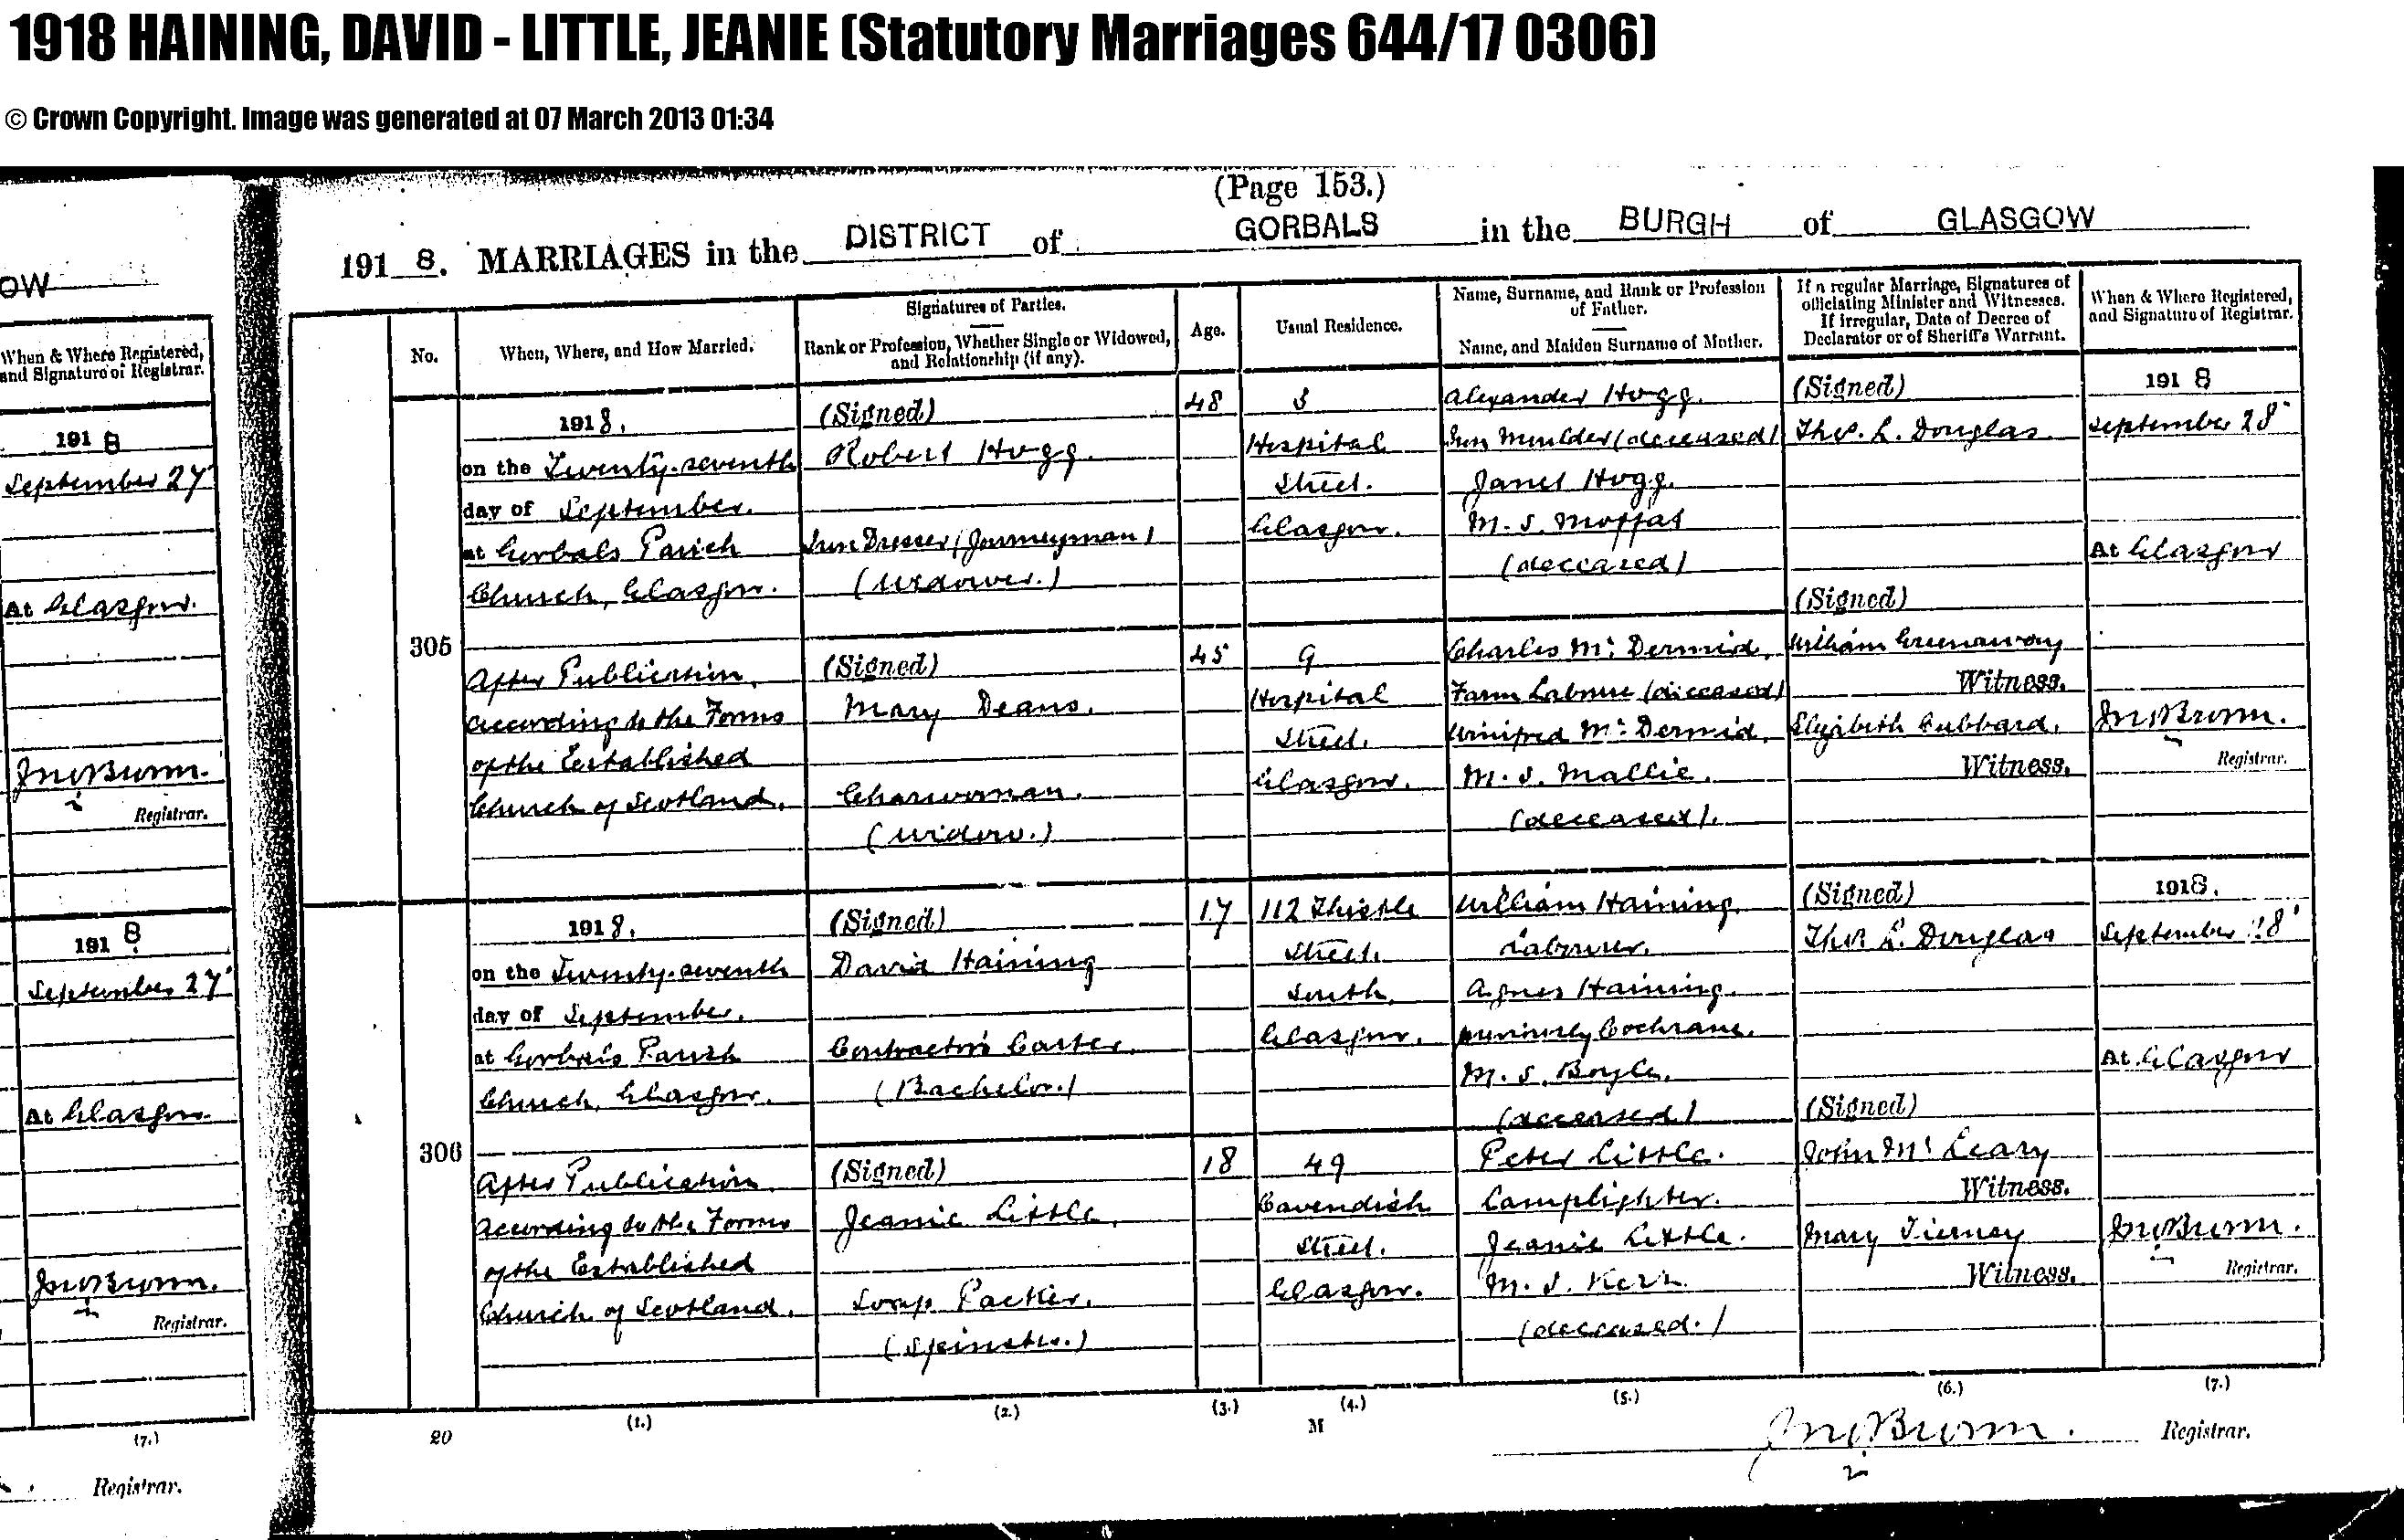 1918 HAINING, DAVID - LITTLE, JEANIE (Statutory Marriages 644/17 0306)
© Crown Copyright. Image was generated at 07 March 2013 01:34
OW
When & Where Registered,
and Signature of Registrar.
1918
September 27
At Glasgow.
Jno Brown.
Registrar.
1918
September 27
At Glasgow.
Jno Brown.
Registrar.
(7.)
Registrar.
(Page 153.)
1918. MARRIAGES in the DISTRICT of GORBALS in the BURGH of GLASGOW
No.
When, Where, and How Married.
Signatures of Parties.
Rank or Profession, Whether Single or Widowed,
and Relationship (if any).
Age.
Usual Residence.
Name, Surname, and Rank or Profession
of Father.
Name, and Maiden Surname of Mother.
If a regular Marriage, Signatures of
officiating Minister and Witnesses.
If irregular, Date of Decree of
Declarator or of Sheriff's Warrant.
When & Where Registered,
and Signature of Registrar.
305
1918.
on the Twenty-seventh
day of September.
at Gorbals Parish
Church, Glasgow.
After Publication,
according to the Forms
of the Established
Church of Scotland.
(Signed)
Robert Hogg.
Iron Dresser (Journeyman)
(Widower.)
(Signed)
Mary Deans.
Charwoman.
(Widow.)
48
45
Hospital
Street.
Glasgow.
9
Hospital
Street.
Glasgow.
Alexander Hogg.
Iron Moulder (deceased)
Janet Hogg.
M.S. Moffat
(deceased)
Charles McDermid,
Farm Labourer (deceased)
Winifred McDermid,
M.S. Mallie.
(deceased).
(Signed)
Thos. L. Douglas.
(Signed)
William Greenaway
Witness.
Elizabeth Hubbard.
Witness.
1918
September 28
At Glasgow
Jno Brown.
Registrar.
306
1918.
on the Twenty-seventh
day of September.
at Gorbals Parish
Church, Glasgow.
After Publication,
according to the Forms
of the Established
Church of Scotland.
(Signed)
David Haining
Contractor's Carter.
(Bachelor.)
(Signed)
Jeanie Little.
Soap Packer.
(Spinster.)
17
18
112 Thistle
Street.
South
Glasgow.
49
Cavendish
Street.
Glasgow.
William Haining.
Labourer.
Agnes Haining.
previously Cochrane.
M.S. Boyle.
(deceased)
Peter Little.
Lamplighter.
Jeanie Little.
M.S. Kerr.
(deceased.)
(Signed)
Thos. L. Douglas
(Signed)
John McLeary
Witness.
Mary Tierney
Witness.
1918.
September 28
At Glasgow
Jno Brown.
Registrar.
(1.) (2.) (3.) (4.) (5.) (6.) (7.)
20
M
Jno Brown. Registrar.